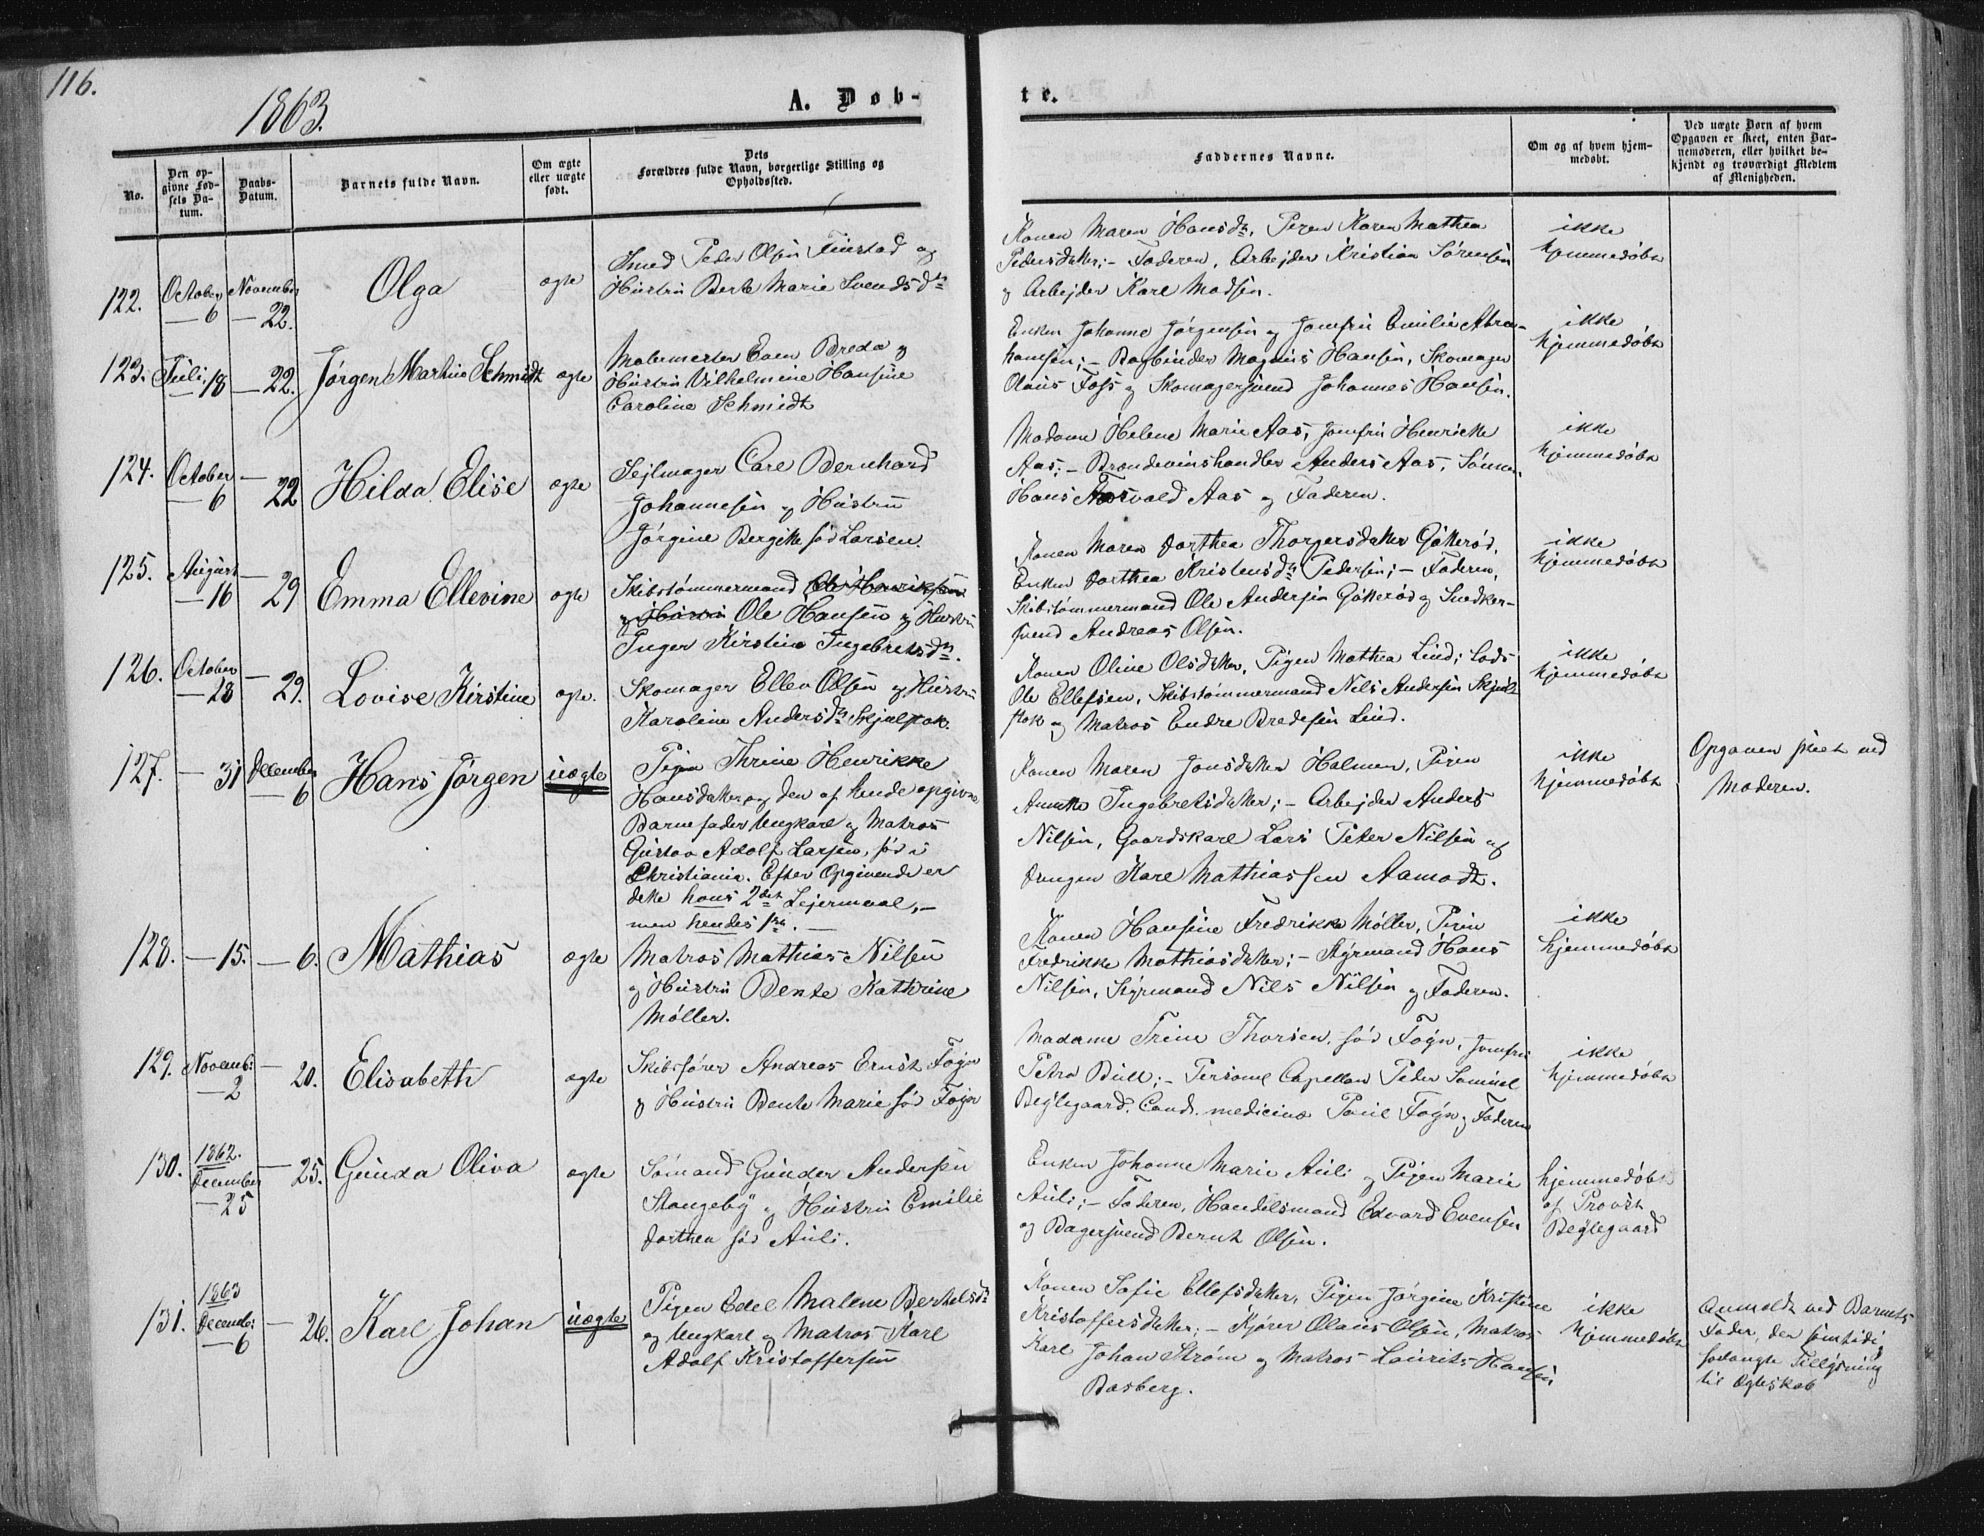 116.
1863.
A. Døb-
te.
No.
Den op-
givne Fød-
sels Da-
tum.
Daabs-
Datum.
Barnets fulde Navn.
Om ægte
eller uægte
født.
Dets
Forældres fulde Navn, borgerlige Stilling og
Opholdssted.
Faddernes Navne.
Om og af hvem hjem-
medøbt.
Ved uægte Børn af hvem
Opgaven er skeet, enten Bar-
nemoderen, eller hvilket be-
kjendt og troværdigt Medlem
af Menigheden.
122.
October
— 6
November
— 22.
Olga
ægte
Smed Peder Olsen Finstad og
Hustru Berte Marie Svendsdtr
Konen Maren Hansdtr, Pigen Karen Mathea
Pedersdatter; – Faderen, Arbejder Kristian Sørensen
og Arbejder Karl Madsen.
ikke
hjemmedøbt
123.
Juli
— 18
— 22.
Jørgen Martin Schmidt
ægte
Malermester Even Breda og
Hustru Vilhelmine Hansine
Caroline Schmidt
Enken Johanne Jørgensen og Jomfru Emilie Abra-
hamsen; – Bogbinder Magnus Hansen, Skomager
Olaus Foss og Skomagersvend Johannes Hansen.
ikke
hjemmedøbt
124.
October
— 6
— 22
Hilda Elise
ægte
Sejlmager Carl Bernhard
Johannesen og Hustru
Jørgine Bergitte fød Larsen.
Madame Helene Marie Aas, Jomfru Henrikke
Aas; – Brændevinshandler Anders Aas, Sønnen
Hans Torvald Aas og Faderen.
ikke
hjemmedøbt
125.
August
— 16
— 29
Emma Ellevine
ægte
Skibstømmermand Ole Henriksen
og Hustru Ole Hansen og Hustru
Inger Kirstine Ingebretsdtr.
Konen Maren Dorthea Thorgersdatter Gøtterød,
Enken Dorthea Kristensdtr Pedersen; – Faderen,
Skibstømmermand Ole Andersen Gøtterød og Snedker-
svend Andreas Olsen.
ikke
hjemmedøbt
126.
October
— 28
— 29.
Lovise Kirstine
ægte.
Skomager Ellev Olsen og Hustru
Karoline Andersdtr Skjælstok.
Konen Oline Olsdatter, Pigen Mathea Lind; Lods
Ole Ellefsen, Skibstømmermand Nils Andersen Skjæl-
stok og Matros Endre Bredesen Lind.
ikke
hjemmedøbt
127.
— 31
December
— 6
Hans Jörgen
uægte
Pigen Thrine Henrikke
Hansdatter og den af hende opgivne
Barnefader Ungkarl og Matros
Gustav Adolf Larsen, fød i
Christiania. Efter Opgivende er
dette hans 2det Lejermaal, –
men hendes 1ste. —
Konen Maren Jonsdatter Holmen, Pigen
Annette Ingebretsdatter; – Arbejder Anders
Nilsen, Gaardskarl Lars Peter Nilsen og
Drengen Karl Mathiassen Aamodt.
ikke
hjemmedøbt
Opgaven skeet ved
Moderen.
128.
— 15.
— 6.
Mathias
ægte
Matros Mathias Nilsen
og Hustru Bente Kathrine
Møller.
Konen Hansine Fredrikke Møller, Pigen
Fredrikke Mathiasdatter; – Styrmand Hans
Nilsen, Styrmand Nils Nilsen og Faderen.
ikke
hjemmedøbt
129.
Novemb:
— 2
— 20.
Elisabeth
ægte
Skibsfører Andreas Ernst Føyn
og Hustru Bente Marie fød Føyn
Madame Trine Thorsen, fød Føyn, Jomfru
Petra Bull; – Personel Capellan Peder Samuel
Bøylegaard, Cand. medicinæ Poul Føyn og Faderen
ikke
hjemmedøbt
130.
1862.
December
— 25
— 25.
Gunda Oliva
ægte
Sømand Gunder Andersen
Stangeby og Hustru Emilie
Dorthea fød Auli.
Enken Johanne Marie Auli og Pigen Marie
Auli; – Faderen, Handelsmand Edvard Evensen
og Bagersvend Bernt Olsen.
hjemmedøbt
af Provst
Bøylegaard
131.
1863
Decemb:
— 6
— 26.
Karl Johan
uægte
Pigen Edel Malene Bertelsdtr
og Ungkarl og Matros Karl
Adolf Kristoffersen
Konen Sofie Ellefsdatter, Pigen Jørgine Kristine
Kristoffersdatter; – Kjører Olaus Olsen, Matros
Karl Johan Strøm og Matros Laurits Hansen
Basberg.
ikke
hjemmedøbt
Anmeldt ved Barnets
Fader, der samtidig
forlangte Tillysning
til Ægteskab